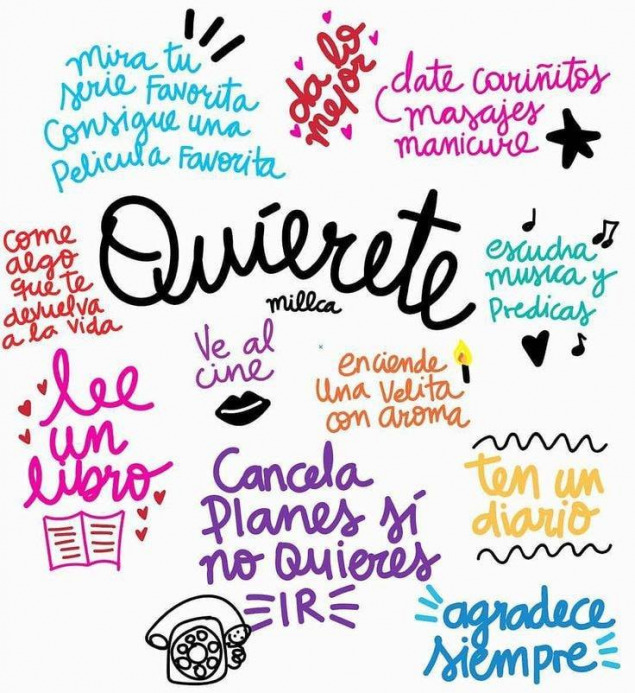 mira tu
serie Favorita
Consigue una
Pelicula Favorita
da lo
mejor
date cariñitos
masajes
manicure
Quíerete
millca
come
algo
que te
devuelva
a la vida
escucha
musica y
Predicas
Ve al
cine
enciende
una velita
con aroma
lee
un
libro
Cancela
Planes sí
no Quieres
IR
ten un
diario
agradece
siempre